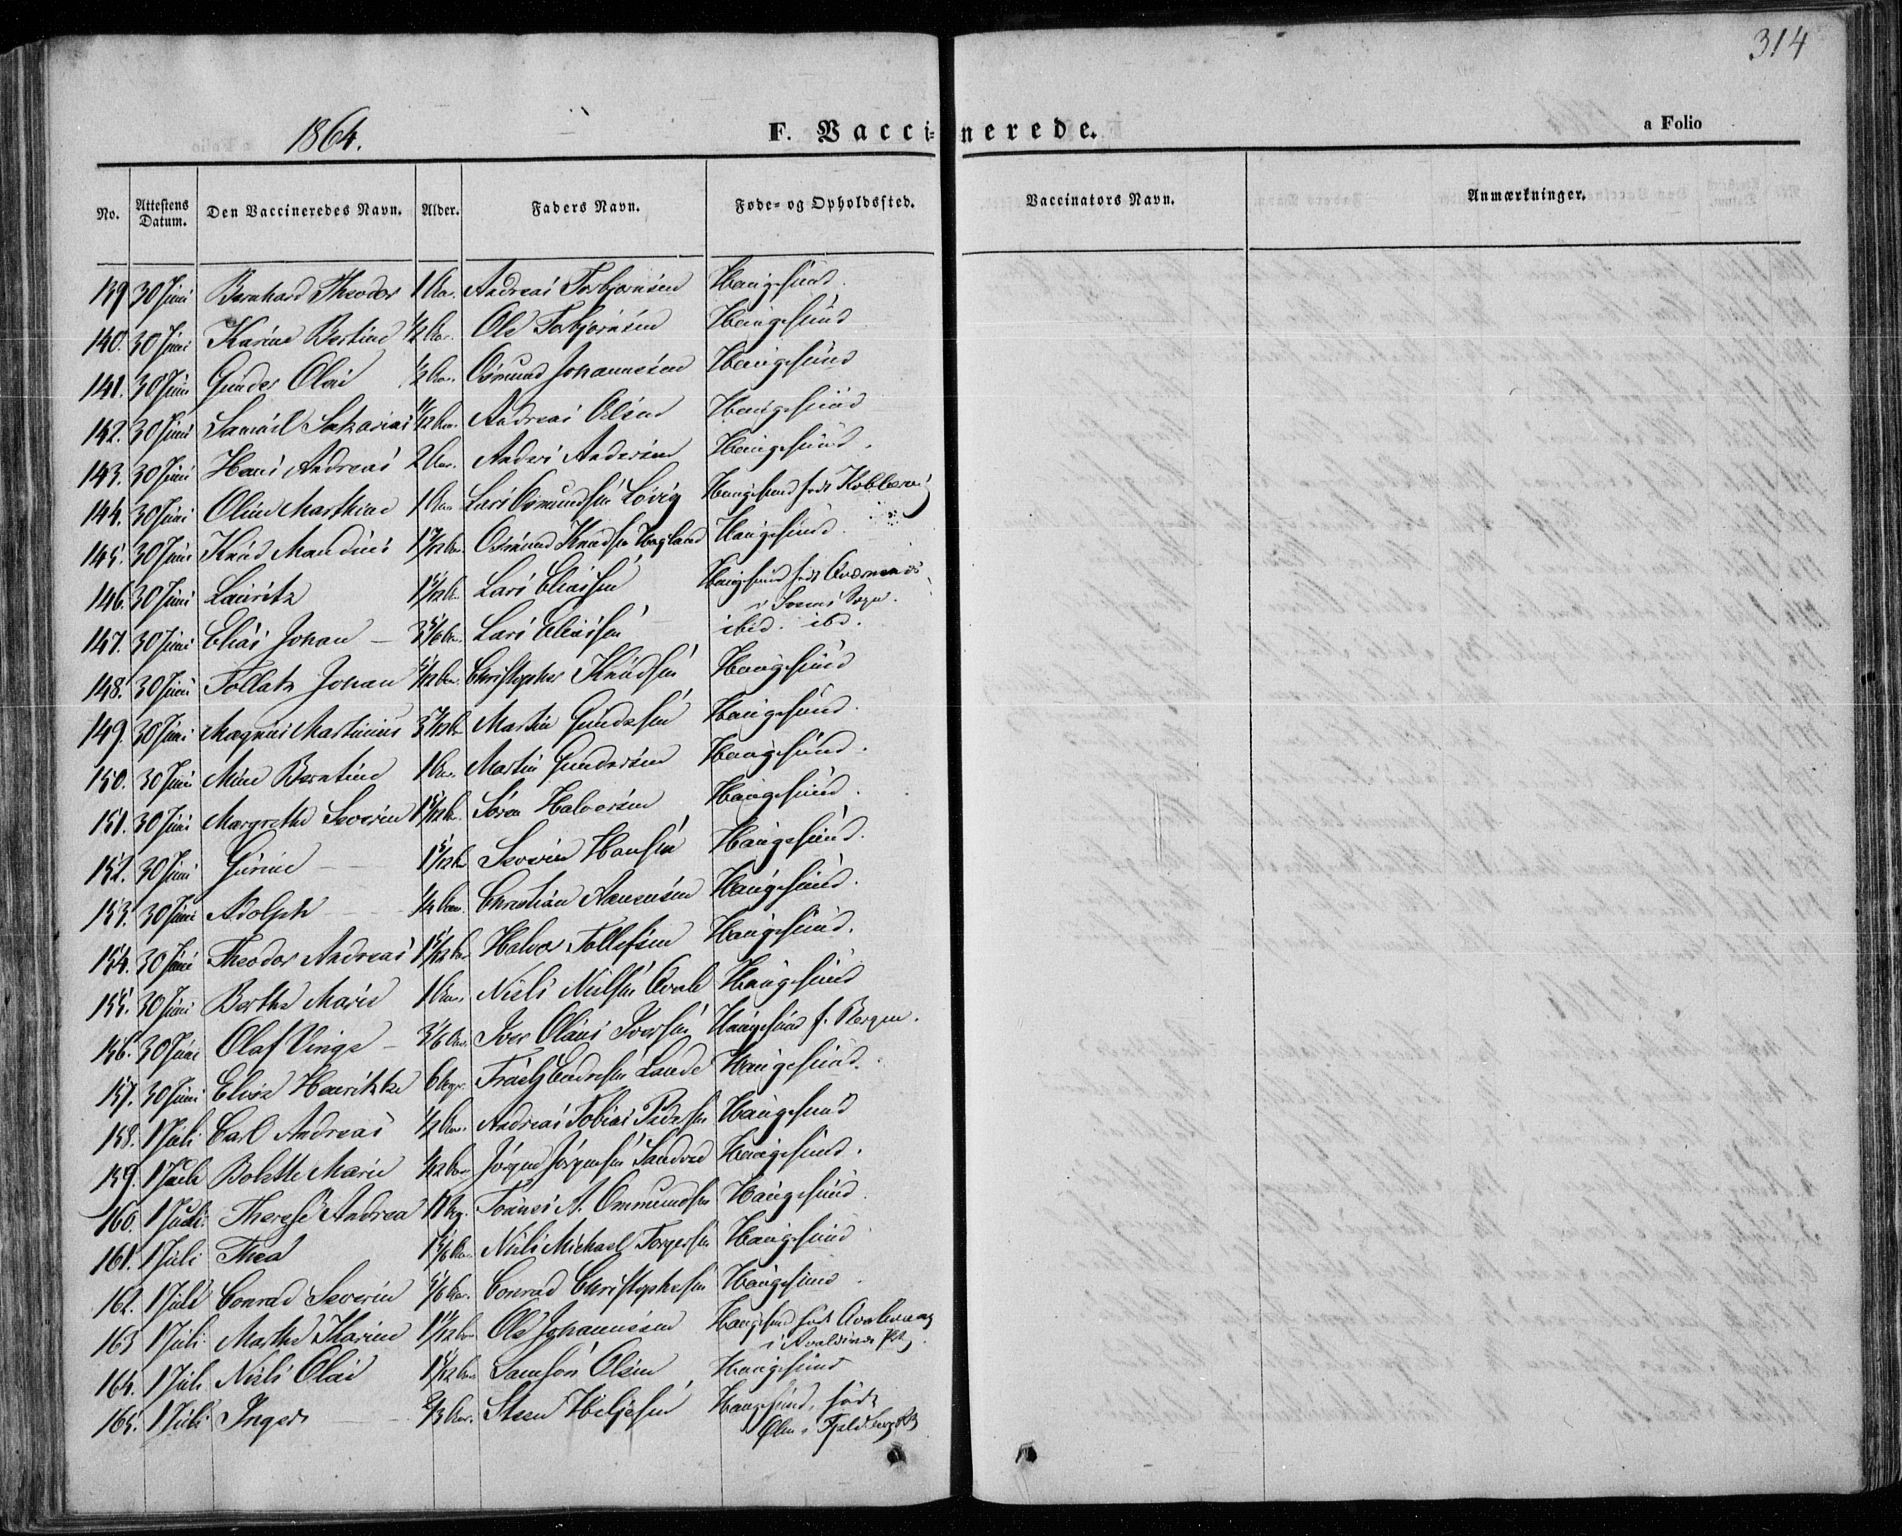 314
1864.
F. Vaccinerede.
a Folio
No. Attestens Datum. Den Vaccineredes Navn. Alder. Faders Navn. Føde- og Opholdssted. Vaccinators Navn. Anmærkninger.
139. 30 Juni Bernhard Theodor 1 Aar. Andreas Torbjørnsen Haugesund.
140. 30 Juni Karine Bertine 1/2 Aar. Ole Torbjørnsen Haugesund
141. 30 Juni Gunder Olai 1/2 Aar. Osmund Johannesen Haugesund
142. 30 Juni Samuel Sakarias 11/12 Aar. Andreas Olsen Haugesund
143. 30 Juni Hans Andreas 2 Aar. Anders Andersen Haugesund.
144. 30 Juni Oline Marthine 1 Aar Lars Osmundsen Løvig Haugesund født
145. 30 Juni Knud Mandius 1 7/12 Aar Osmund Knudsen Hagland Haugesund.
146. 30 Juni Lauritz 1 5/12 Aar Lars Eliassen Haugesund født
i Sveens Sogn.
147. 30 Juni Elias Johan – 3 5/6 Aar. Lars Eliassen ibid. ibd.
148. 30 Juni Tollak Johan 5/12 Aar. Christopher Knudsen Haugesund
149. 30 Juni Magnus Martinius 3 7/12 Martin Gundersen Haugesund.
150. 30 Juni Mine Berntine 1 Aar. Martin Gundersen Haugesund.
151. 30 Juni Margrethe Severine 1 5/12 Søren Halvorsen Haugesund.
152. 30 Juni Gurine – 1 5/12 Severin Hansen Haugesund.
153. 30 Juni Adolph – 1/4 Aar. Christian Aanensen Haugesund.
154. 30 Juni Theodor Andreas 1 5/12 Aar Halvor Tollefsen Haugesund.
155. 30 Juni Berthe Marie 1 Aar. Niels Nielsen Haugesund
156. 30 Juni Olaf Vinge – 3/6 Aar. Iver Olaus Iversen Haugesund f. Bergen.
157. 30 Juni Elise Henrikke 6 Uger. Endresen Lande Haugesund.
158. 1 Juli Carl Andreas 1/2 Aar. Andreas Tobias Pedersen Haugesund
159. 1 Juli Bolette Marie 1/12 Aar Jørgen Jørgensen Sandved Haugesund.
160. 1 Juli Therese Andrea 11 Ug. Tønnes A. Ommundsen Haugesund.
161. 1 Juli Thea 1 5/6 Aar. Niels Michael Torgersen Haugesund
162. 1 Juli Conrad Severin 5/6 Aar. Conrad Christophersen Haugesund.
163 1 Juli Marthe Karine 1 11/12 Aar Ole Johannesen Haugesund født
i Avaldsnæs Pgld.
164. 1 Juli Niels Olai 1 1/12 Aar Samson Olsen Haugesund
165. 1 Juli Inger – 2/3 Aar. Steen Heljesen Haugesund, født
Ølen i Fjeldberg Pgld